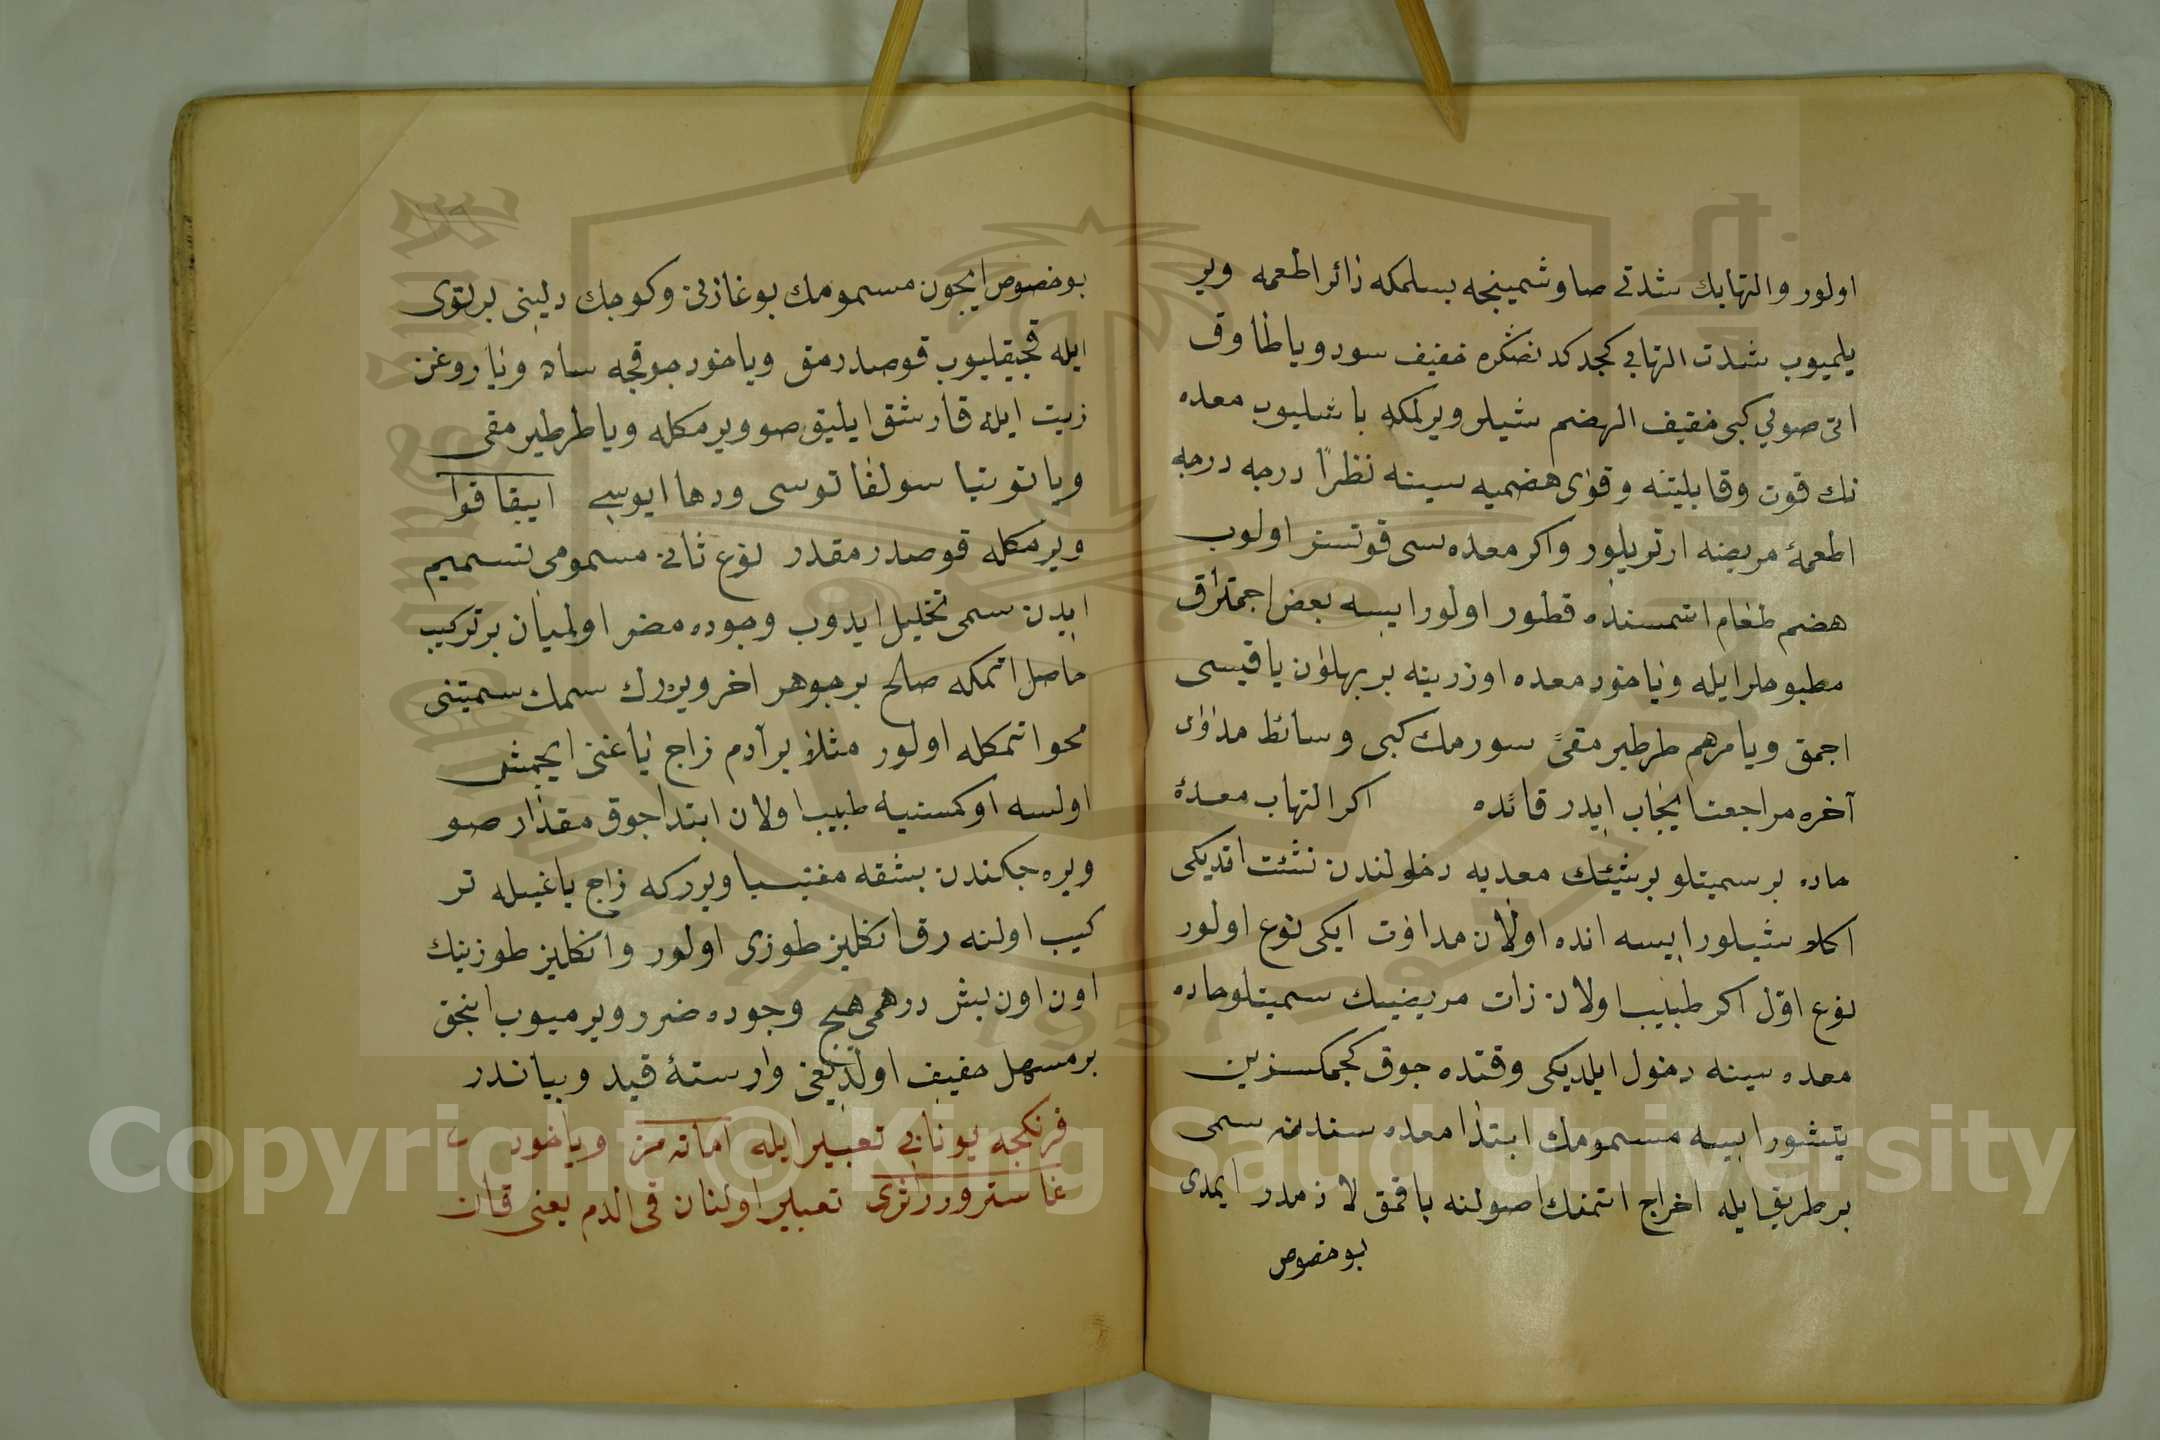 اولور والتهابك شدتی صاوشمینجه بسلمكه دائر اطعمه ویر
یلمیوب شدت التهابی كجدكدنصكره خفیف سود ویا طاوق
اتی صویی كبی خفیف الهضم شیلر ویرلمكه باشلیوب معده
نك قوت وقابلیتنه وقوای هضمیه سینه نظراً درجه درجه
اطعمهٔ مریضه ارتریلور واكر معده سی قوتسز اولوب
هضم طعام اتمسنده قصور اولورایسه بعض اجمتراق
مطبوخلر ایله ویاخود معده اوزرینه بر بهلوان یاقیسی
اجمق ویا مرهم طرطیر مقئ سورمك كبی وسائط مداوای
آخره مراجعت ایجاب ایدر قائده اكر التهاب معدهٔ
حاده بر سمیتلو برشیئك معدیه دخولندن نشئت اتدیكی
اكلاشیلورایسه انده اولان مداوت ایكی نوع اولور
نوع اوّل اكر طبیب اولان ذات مریضینك سمیتلو ماده
معده سینه دخول ایلدیكی وقتده جوق كجمكسزین
یتشورایسه مسمومك ابتدا معده سندن سمی
برطریق ایله اخراج اتمنك اصولنه باقمق لازمدر ایمدی
بوخصوص
بوخصوص ایجون مسمومك بوغازینی وكوجك دیلینی بر توی
ایله قجیقلیوب قوصدرمق ویاخود جوقجه ساده ویا روغن
زیت ایله قارشق ایلیق صو ویرمكله ویا طرطیر مقی
ویا توتیا سولفاتوسی ودها ایوسی ایپقاقوا
ویرمكله قوصدرمقدر نوع ثانی مسمومی تسمیم
ایدن سمی تحلیل ایدوب وجوده مضر اولمیان بر تركیب
حاصل اتمكه صالح بر جوهر اخر ویره رك سمك سمیتنی
محو اتمكله اولور مثلا بر آدم زاج یاغنی ایچمش
اولسه او كمسنیه طبیب اولان ابتدا جوق مقدار صو
ویره جكندن بشقه مغنیسیا ویرركه زاج یاغیله تر
كیب اولنه رق انكلیز طوزی اولور وانكلیز طوزینك
اون اون بش درهمی هیچ وجوده ضرر ویرمیوب انجق
بر مسهل خفیف اولدیغی وارستهٔ قید وبیاندر
فرنكجه یونانی تعبیر ایله اماته مز ویاخود
غاسترورراژی تعبیر اولنان قی الدم یعنی قان
Copyright © King Saud University
1957